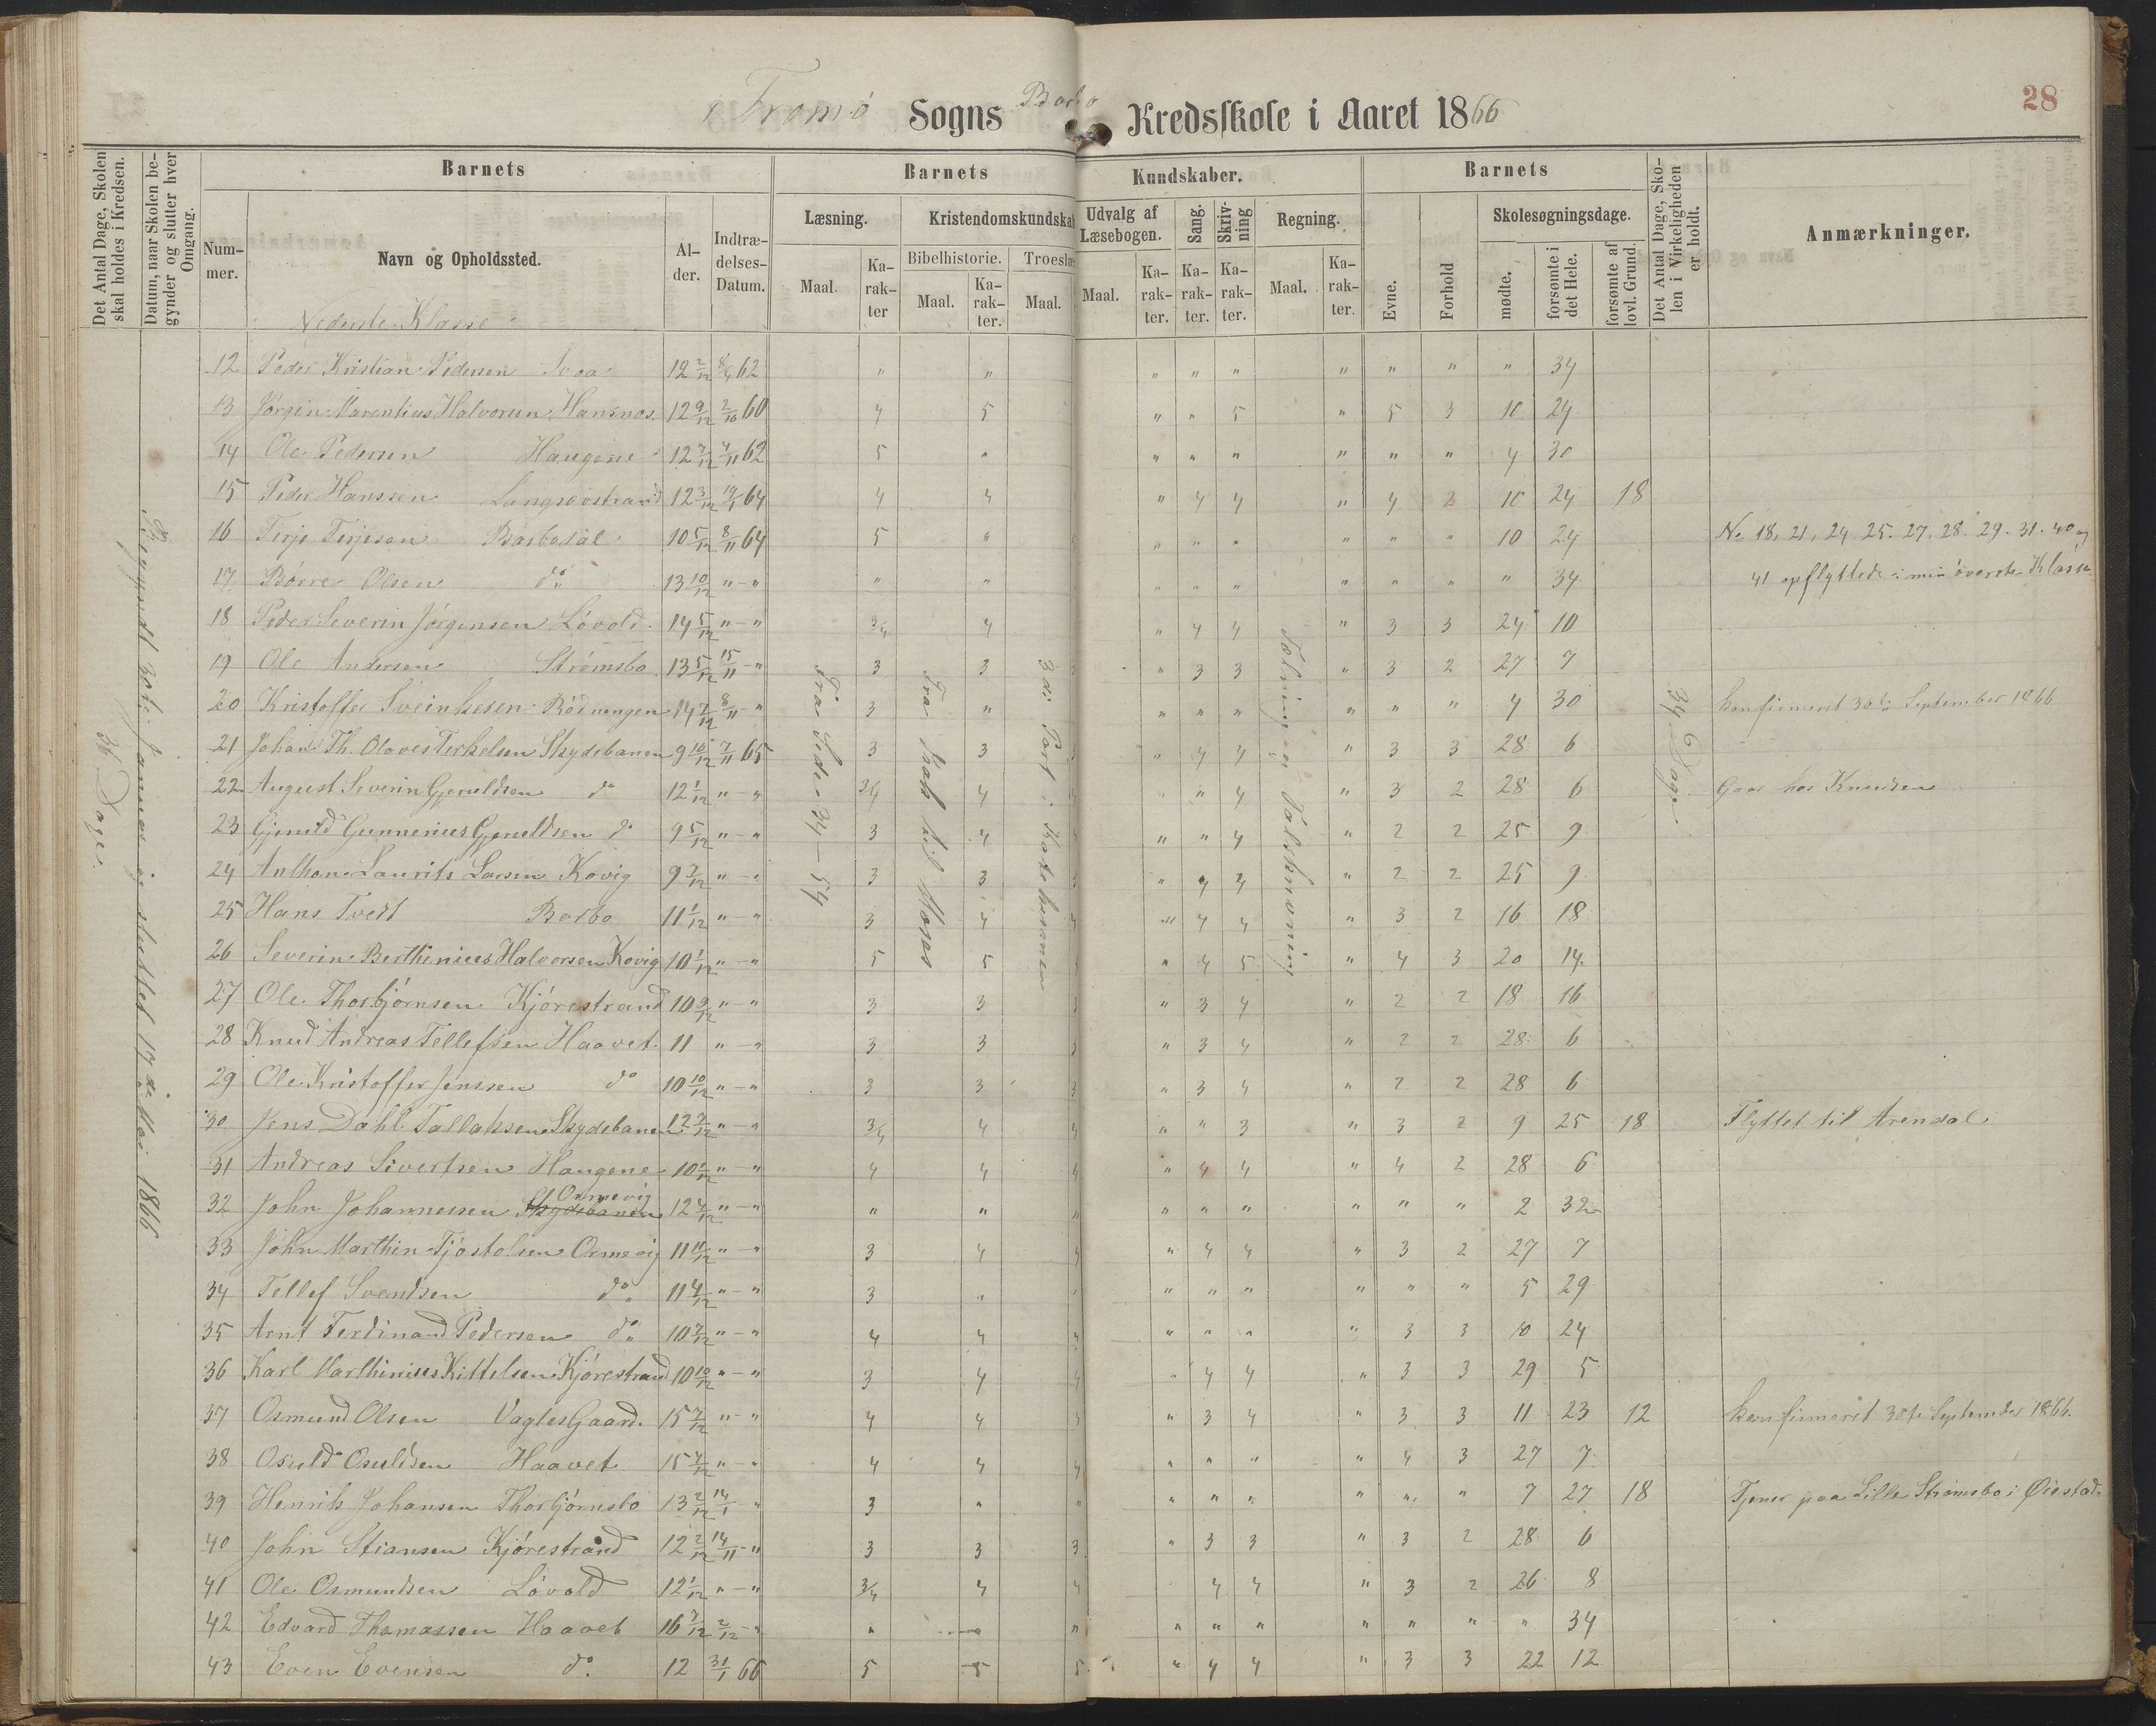 Tromø Sogns Barbo Kredsskole i Aaret 1866
28
Det Antal Dage, Skolen skal holdes i Kredsen.
Datum, naar Skolen begynder og slutter hver Omgang.
Barnets
Barnets
Kundskaber.
Barnets
Det Antal Dage, Skolen i Virkeligheden er holdt.
Anmærkninger.
Nummer.
Navn og Opholdssted.
Alder.
Indtrædelses-Datum.
Læsning.
Kristendomskundskab
Udvalg af Læsebogen.
Sang.
Skrivning
Regning.
Evne.
Forhold
Skolesøgningsdage.
Maal.
Karakter
Bibelhistorie.
Troeslæ
Maal.
Karakter.
Maal.
Maal.
Karakter.
Karakter.
Karakter.
Maal.
Karakter.
mødte.
forsømte i det Hele.
forsømte af lovl. Grund.
Nederste Klasse
36 Dage.
Begyndt 30te Januar og sluttet 17de Mai 1866
Fra Side 34–54
Fra Isak til Moses
3die Part i Katekismen
Tælning og Talskrivning
34 Dage
12 Peder Kristian Pedersen Svaa 12 2/12 8/4 62 " " " " " " " " " 34
13 Jørgen Marentius Halvorsen Hansnæs. 12 9/12 2/10 60 4 5 " " 5 " 5 3 10 24
14 Ole Pedersen Haugene 12 7/12 7/11 62 5 " " " " " " " 4 30
15 Peder Hanssen Langsævstrand 12 3/12 19/1 64 4 4 " 4 4 " 4 2 10 24 18
16 Terje Terjesen Barbodal 10 5/12 8/11 64 5 " " " " " " " 10 24 No 18, 21, 24. 25. 27. 28. 29. 31. 40 og
17 Børre Olsen do 13 10/12 " – " " " " " " " " " " 34 41 opflyttede i min øverste Klasse
18 Peder Severin Jørgensen Løvold. 14 5/12 " – " 3/4 4 " 4 4 " 3 3 24 10
19 Ole Andersen Strømsbo 13 5/12 15/11 – " 3 3 " 3 3 " 3 2 27 7
20 Kristoffer Sveinhesen Rødningen 14 7/12 8/11 – " 3 " " " " " " " 4 30 konfirmeret 30te September 1866
21 Johan Th. Olaves Terkelsen Skydebanen 9 10/12 7/11 65 3 3 " 4 4 " 3 3 28 6
22 August Severin Gjeruldsen do 12 1/12 " – " 3/4 4 " " 4 " 3 2 28 6 Gaar hos Knudsen
23 Gjeruld Gunnerius Gjeruldsen do 9 5/12 " – " 3 4 " " 4 " 2 2 25 9
24 Anthon Laurits Larsen Kovig 9 7/12 " – " 3 3 " 4 4 " 2 2 25 9
25 Hans Tvedt Barbo 11 1/12 " – " 3 4 " 4 4 " 3 2 16 18
26 Severin Berthinius Halvorsen Kovig 10 1/12 " – " 5 5 " 4 5 " 4 3 20 14
27 Ole Thorbjørnsen Kjørestrand 10 9/12 " – " 3 3 " 3 4 " 2 2 18 16
28 Knud Andreas Tellefsen Haavet. 11 " – " 3 3 " 3 4 " 2 2 28 6
29 Ole Kristoffer Jenssen do 10 10/12 " – " 3 3 " 3 4 " 2 2 28 6
30 Jens Dahl Tallaksen Skydebanen 12 7/12 " – " 3/4 4 4 " " 3 " 3 2 9 25 18 Flyttet til Arendal
31 Andreas Sivertsen Haugene 10 1/12 " – " 4 4 4 " 4 4 " 4 2 28 6
32 John Johannessen Skydebanen Osmevig 12 4/12 " – " " " " " " " " " " 2 32
33 John Marthin Tjøstolsen Osmevig 11 11/12 " – " 3 4 4 " 4 4 " 3 2 27 7
34 Tellef Svendsen do 11 4/12 " – " 3 " " " " " " " " 5 29
35 Arnt Ferdinand Pedersen do 10 7/12 " – " 4 4 4 " " " " 3 3 10 24
36 Karl Marthinius Kittelsen Kjørestrand 10 10/12 " – " 3 4 4 " 4 4 " 3 3 29 5
37 Osmund Olsen Vagles Gaard. 15 7/12 " – " 4 4 " 3 4 " 3 3 11 23 12 konfirmeret 30te September 1866.
38 Osuld Osuldsen Haavet 15 4/12 " – " 4 4 4 " " " " 4 3 27 7
39 Henrik Johansen Thorbjørnsbo 13 2/12 14/1 – " 3 " " " " " " " " 7 27 18 Tjener paa Lille Strømsbo i Øiestad.
40 John Stiansen Kjørestrand 12 2/12 14/11 – " 3 3 3 " 3 3 " 3 2 28 6
41 Ole Osmundsen Løvold 12 1/12 " – " 3/4 4 4 4 4 " 3 2 26 8
42 Edvard Thomassen Haavet 16 7/12 2/12 – " " " " " " " " " " " 34
43 Even Evensen do. 12 31/1 66 5 5 5 " 4 4 " 3 3 22 12